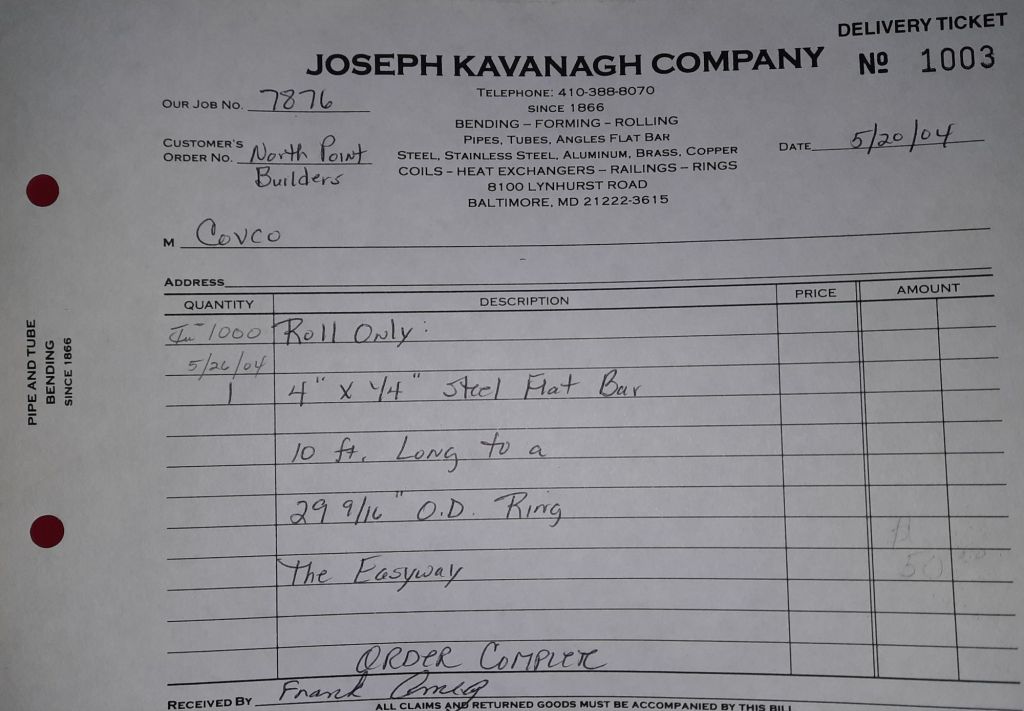 DELIVERY TICKET
JOSEPH KAVANAGH COMPANY
Nº 1003
TELEPHONE: 410-388-8070
SINCE 1866
BENDING – FORMING – ROLLING
PIPES, TUBES, ANGLES FLAT BAR
STEEL, STAINLESS STEEL, ALUMINUM, BRASS, COPPER
COILS – HEAT EXCHANGERS – RAILINGS – RINGS
8100 LYNHURST ROAD
BALTIMORE, MD 21222-3615
OUR JOB NO. 7876
CUSTOMER'S
ORDER NO. North Point
Builders
DATE 5/20/04
M Covco
ADDRESS
QUANTITY DESCRIPTION PRICE AMOUNT
1000 Roll Only:
5/26/04
1 4" x 1/4" Steel Flat Bar
10 ft. Long to a
29 9/16" O.D. Ring
The Easyway
ORDER COMPLETE
RECEIVED BY Frank
ALL CLAIMS AND RETURNED GOODS MUST BE ACCOMPANIED BY THIS BILL
PIPE AND TUBE
BENDING
SINCE 1866